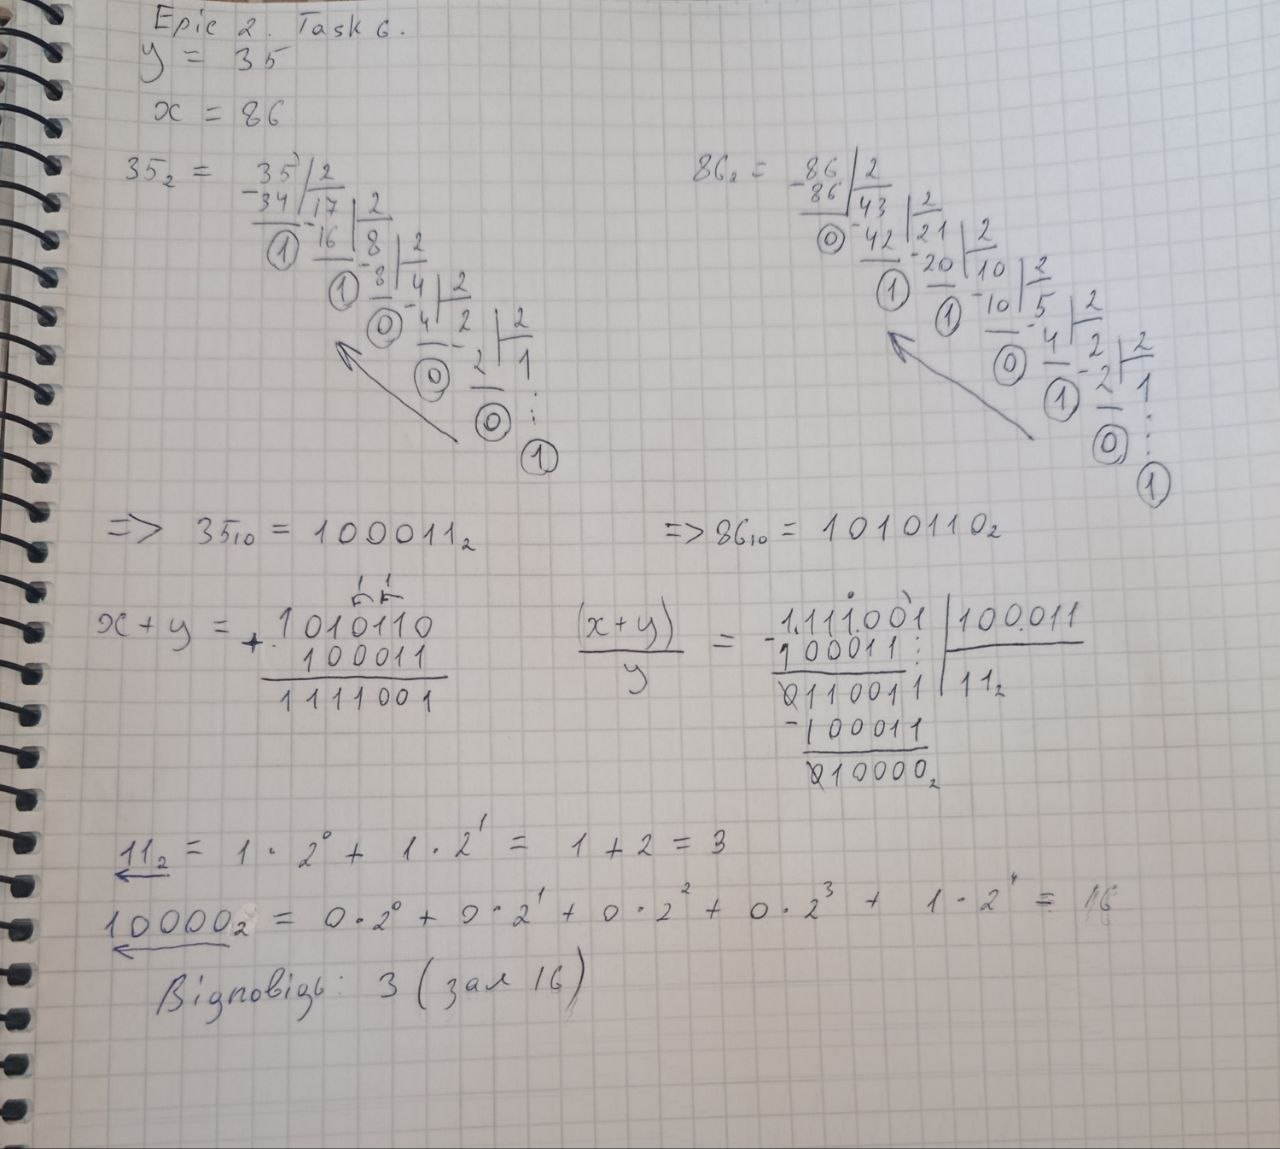 Epic 2. Task 6.
y = 35
x = 86
35₂ = 35 | 2
-34 | 17 | 2
1 -16 | 8 | 2
1 -8 | 4 | 2
0 -4 | 2 | 2
0 -2 | 1
0
1
86₂ = 86 | 2
-86 | 43 | 2
0 -42 | 21 | 2
1 -20 | 10 | 2
1 -10 | 5 | 2
0 -4 | 2 | 2
1 -2 | 1
0
1
=> 35₁₀ = 100011₂
=> 86₁₀ = 1010110₂
1 1
x + y = + 1010110
100011
1111001
(x+y) / y = 1111001 | 100011
-100011 | 11₂
0110011
-100011
010000₂
11₂ = 1 · 2⁰ + 1 · 2¹ = 1 + 2 = 3
10000₂ = 0 · 2⁰ + 0 · 2¹ + 0 · 2² + 0 · 2³ + 1 · 2⁴ = 16
Відповідь: 3 (зал 16)